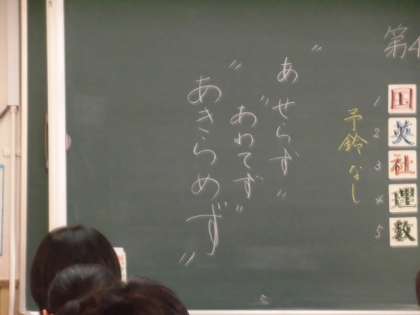 第4
1 国
2 英
3 社
4 理
5 数
予鈴なし
"あせらず"
"あわてず"
"あきらめず"